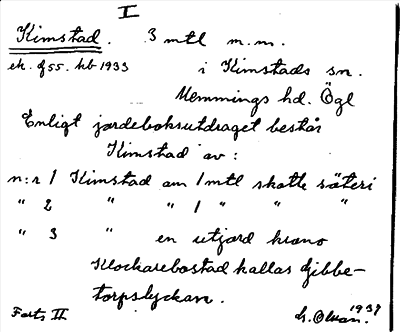 I
Kimstad. 3 mtl m.m.
ek. 9 55. hb 1933 i Kimstads sn.
Memmings hd. Ögl
Enligt jordeboksutdraget består
Kimstad av:
n:r 1 Kimstad om 1 mtl skatte säteri
" 2 " " 1 " " "
" 3 " en utjord krono
Klockarebostad kallas Djibbe-
torpslyckan.
Forts II 1937